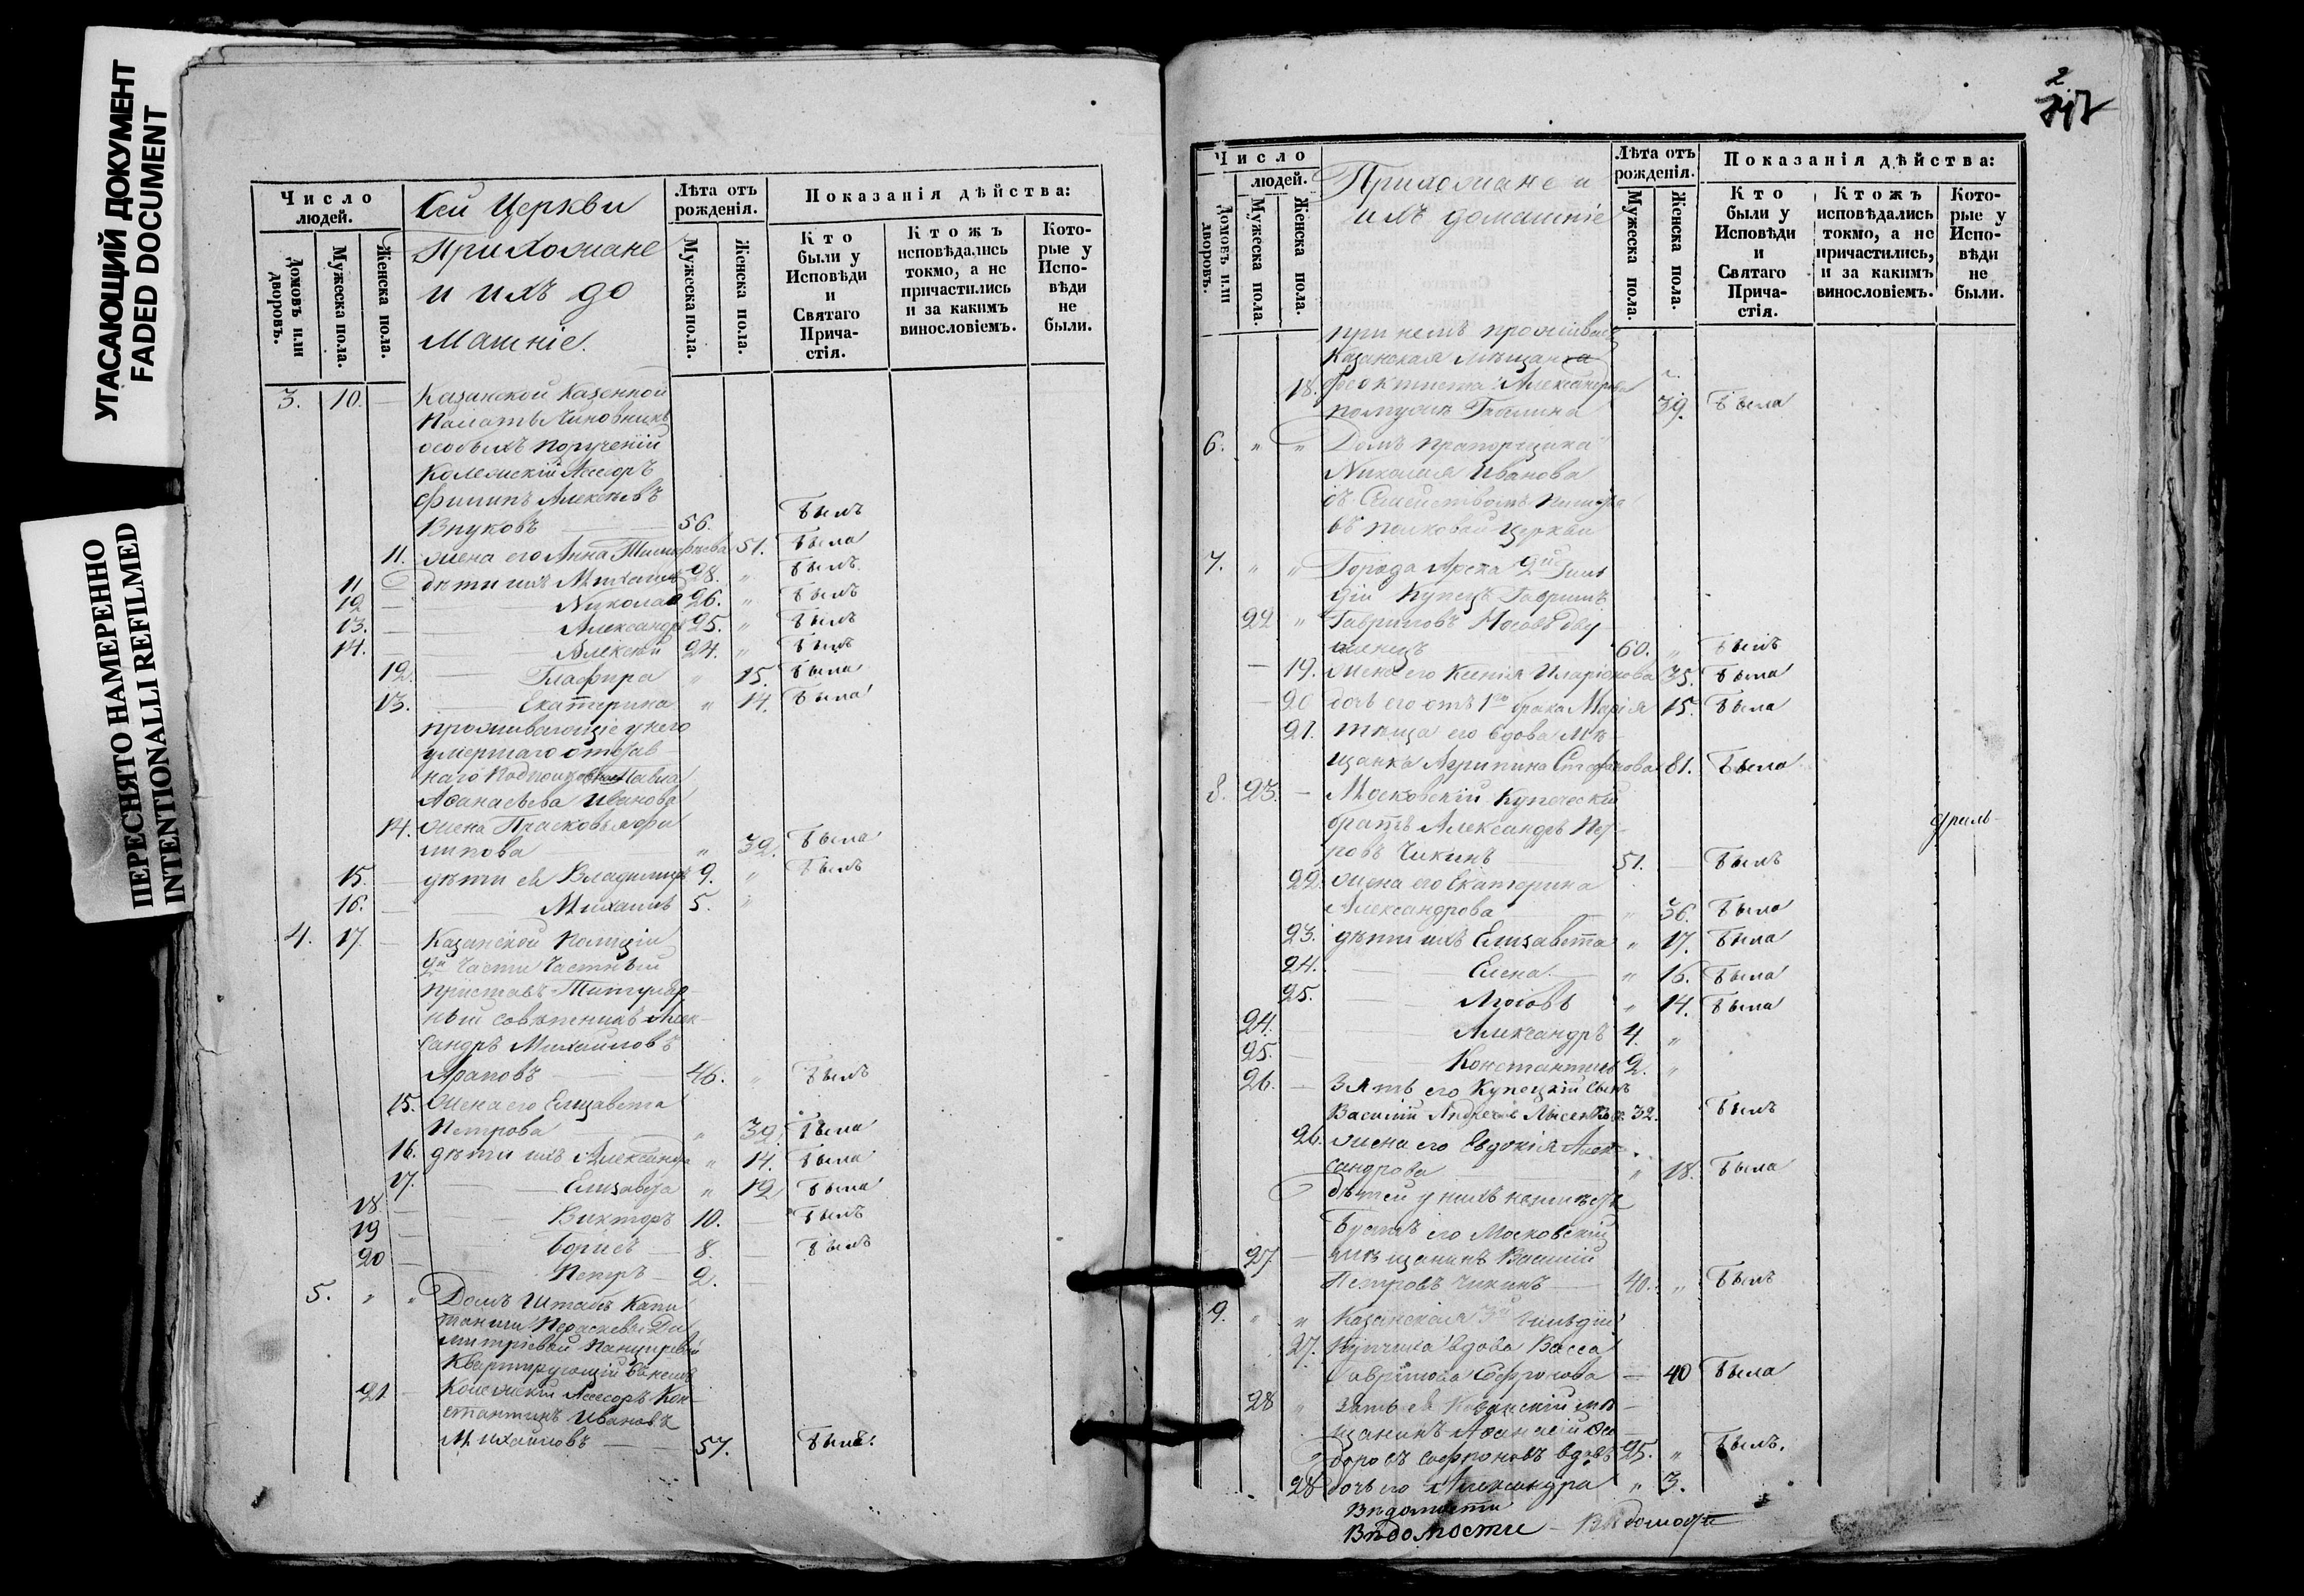 УГАСАЮЩИЙ ДОКУМЕНТ
FADED DOCUMENT
ПЕРЕСНЯТО НАМЕРЕННО
INTENTIONALLI REFILMED
Число людей.
Домовъ или дворовъ.
Мужеска пола.
Женска пола.
Сей Церкви
Прихожане
и ихъ до
машніе.
Лѣта отъ рожденія.
Мужеска пола.
Женска пола.
Показанія дѣйства:
Кто были у Исповѣди и Святаго Прича-стія.
Ктожъ исповѣдались токмо, а не причастились и за какимъ винословіемъ.
Кото-рые у Испо-вѣди не были.
3. 10. — Казанской Казенной
Палаты Чиновникъ
особыхъ порученій
Колежскій Асесоръ
Филипъ Алексѣевъ
Внуковъ 56. былъ
11. жена его Анна 51. была
11 дѣти ихъ Михаилъ 28. „ былъ
12 — Николай 26. „ былъ
13. — Александръ 25. „ былъ
14. — Алексѣй 24. „ былъ
12. Глафира „ 15. была
13. Екатерина „ 14. была
проживающіе у него
умершаго отстав-
наго Подполковника Павла
Афанасьева Иванова
14. жена Прасковья Фи
липова „ 32. была
15. — дѣти ея Владимиръ 9. „ былъ
16. — Михаилъ 5. „
4. 17. — Казанской Полиціи
2й Части Частный
приставъ Титуляр
ный совѣтникъ Алек-
сандръ Михайловъ
Араповъ 46. „ былъ
15. жена его Елизавета
Петрова „ 32. была
16. дѣти ихъ Александра „ 14. была
17. Елизавета „ 12 была
18. — Викторъ 10. — былъ
19 — Борисъ 8. — былъ
20 — Петръ 2. —
5. „ „ Домъ Штабсъ Капи
танши Парасковьи Ди
митріевой
Квартирующій въ немъ
21 — Колежскій Асесоръ Кон-
стантинъ Ивановъ
Михайловъ 57. былъ.
2
Число людей.
Домовъ или дворовъ.
Мужеска пола.
Женска пола.
Прихожане и
ихъ домашніе
Лѣта отъ рожденія.
Мужеска пола.
Женска пола.
Показанія дѣйства:
Кто были у Исповѣди и Святаго Прича-стія.
Ктожъ исповѣдались токмо, а не причастились, и за какимъ винословіемъ.
Кото-рые у Испо-вѣди не были.
при немъ
Казанская мѣщанка
18. Феоктиста Александрова
39. была
6. „ „ Домъ прапорщика
Николая Иванова
съ Семействомъ
въ полковой церкви
7. „ „ Города Арска 2й Гиль
діи Купецъ Гавріилъ
22 „ Гавриловъ Носовъ дву
женецъ 60. „ былъ
— 19. жена его Ксенія Иларіонова 35. была
— 20 дочь его отъ 1го брака Марія 15. была
21. теща его вдова мѣ-
щанка Агрипина Стефанова 81. была
8. 23. — Московскій Купеческій
братъ Александръ Пет-
ровъ Чикинъ 51. — былъ
22. жена его Екатерина
Александрова „ 36. была
23. дѣти ихъ Елизавета „ 17. была
24. Елена „ 16. была
25. Любовь „ 14. была
24. Александръ 4. „
25. — Константинъ 2. „
26. — Зять его Купецкій сынъ
Василій Андреевъ 32. былъ
26. жена его Евдокія Алек
сандрова „ 18. была
дѣтей у нихъ
Братъ его Московскій
27 — мѣщанинъ Василій
Петровъ Чикинъ 40. „ былъ
9. „ „ Казанская 3й гильдіи
27. Купчиха вдова Васса
Гаврилова Софронова — 40 была
28 „ зять ея Казанскій мѣ-
щанинъ Афанасій Фео
доровъ Софроновъ вдовъ 25. „ былъ.
28 дочь его Александра „ 3.
Вѣдомости
Вѣдомости — Вѣдомости